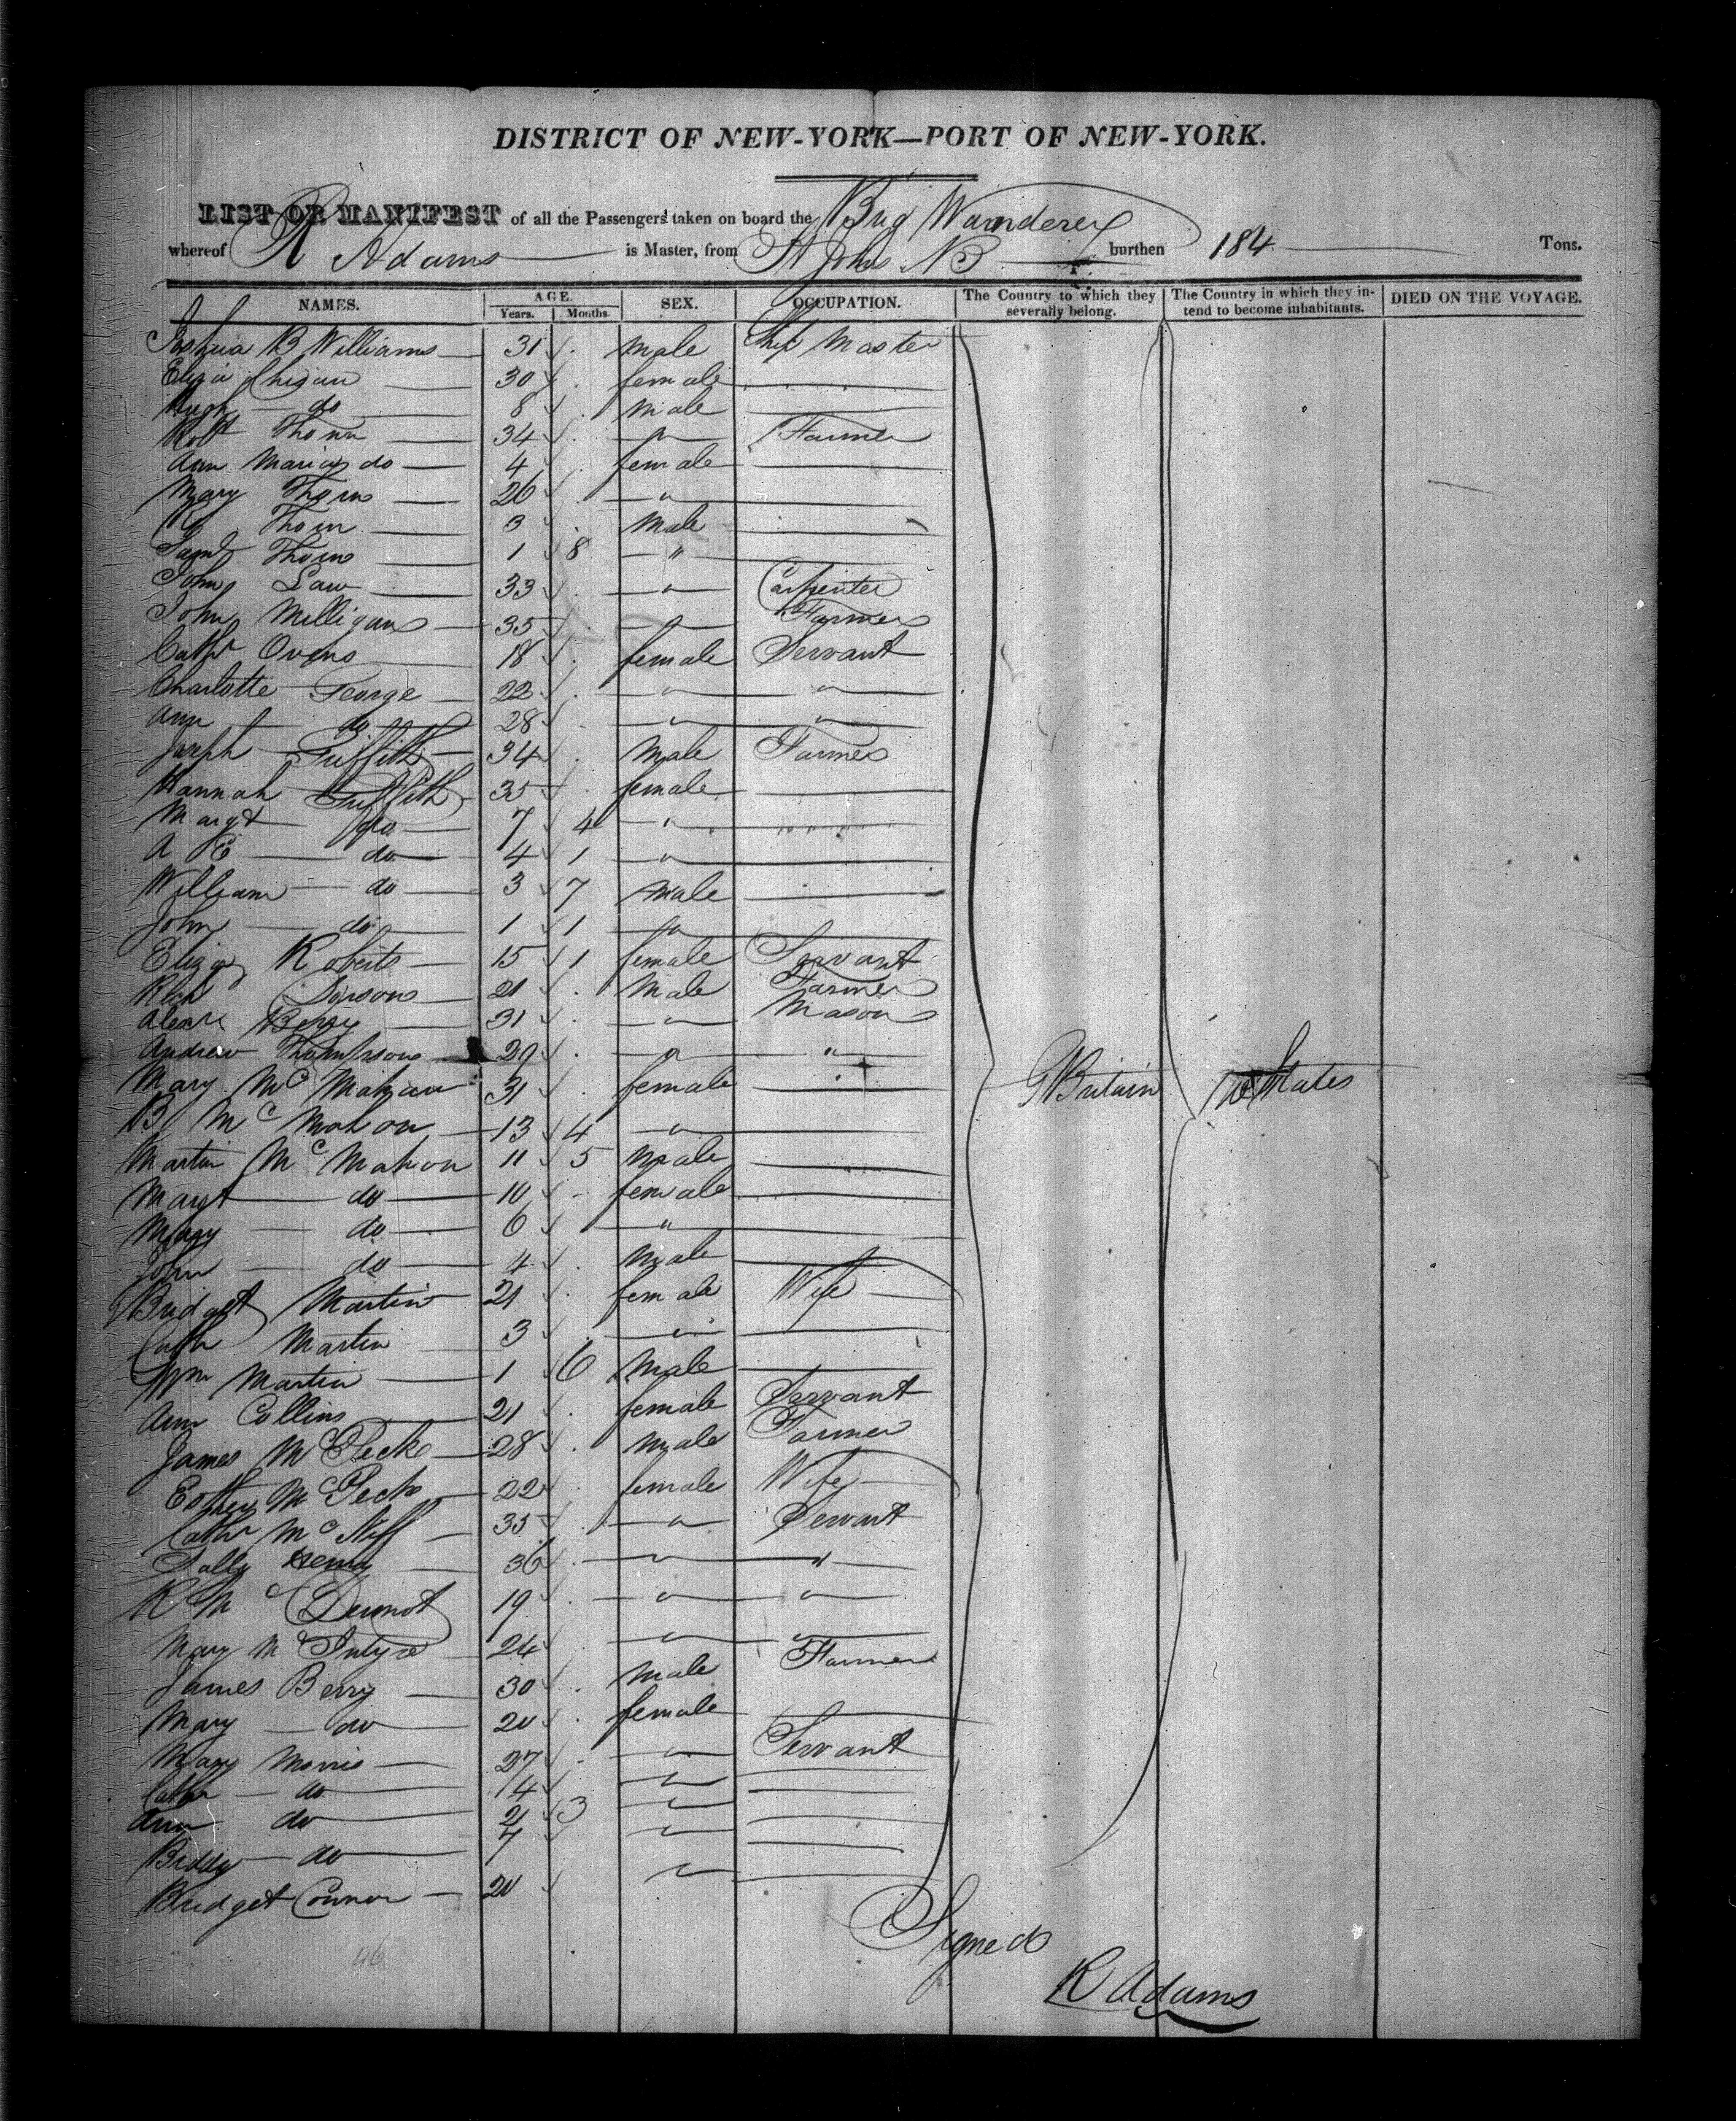 DISTRICT OF NEW-YORK—PORT OF NEW-YORK.
LIST OR MANIFEST of all the Passengers taken on board the Brig Wanderer
whereof R Adams is Master, from St Johns NB burthen 184 Tons.
NAMES. AGE. SEX. OCCUPATION. The Country to which they severally belong. The Country in which they intend to become inhabitants. DIED ON THE VOYAGE.
Years. Months.
Joshua B Williams 31 male Ship Master
Eliza 30 female
Hugh do 8 male
Robt Thorn 34 " Farmer
Ann Maria do 4 female
Mary Thorn 26 "
Thorn 3 male
Saml Thorn 1 8 "
John Law 33 " Carpenter
John Milligan 35 " Farmer
Cathr Owens 18 female Servant
Charlotte George 22 " "
Ann do 28 " "
Joseph Griffith 34 male Farmer
Hannah Griffith 35 female
Margt do 7 4 "
A E do 4 1 "
William do 3 7 male
John do 1 1 "
Eliza Roberts 15 1 female Servant
Richd 21 male Farmer
Alexr Berry 31 " Mason
Andrew Thompson 29 " "
Mary McMahon 31 female "
B McMahon 13 4 "
Martin McMahon 11 5 male
Margt do 10 - female
Mary do 6 "
John do 4 male
Bridget Martin 21 female Wife
Cathr Martin 3 "
Wm Martin 1 6 male
Ann Collins 21 female Servant
James McPeck 28 male Farmer
Esther McPeck 22 female Wife
Cathr McNiff 35 " Servant
Sally Henry 36 " "
R McDermot 19 " "
Mary McIntyre 24 " "
James Berry 30 male Farmer
Mary do 20 female
Mary Morris 27 " Servant
Cathr do 14 "
Ann do 2 3 "
Biddy do 7 "
Bridget Connor 20 "
G Britain U States
Signed
R Adams
46